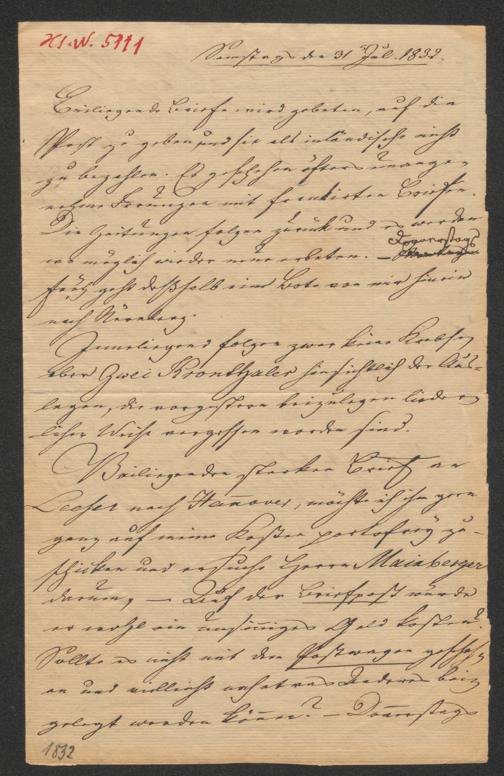 H.W. 5111
Samstag den 31 Jul. 1832.
Beiliegende Briefe wird gebeten, auf die
Post zu geben und sie als inländische nicht
zu bezahlen. Es geschehen öfters unange-
nehme Irrungen mit frankirten Briefen.
Die Zeitungen folgen zurück und es werden
wo möglich wieder neue erbeten. — Donnerstags
früh geht deßhalb ein Bote von mir hinein
nach Nürnberg.
Inneliegend folgen zwar keine Krebse,
aber zwei Kronthaler hinsichtlich der Aus-
lagen, die vorgestern beizulegen
licher Weise vergessen worden sind.
Beiliegenden starken Brief an
nach Hannover, möchte ich ihm gern
ganz auf meine Kosten portofrey zu-
schicken und ersuche Herrn Mainberger
darum, — Auf der Briefpost würde
er wohl ein unsinniges Geld kosten.
Sollte es nicht mit dem Postwagen gescheh-
en und vielleicht etwas Anderes bei-
gelegt werden können? — Donnerstags
1832